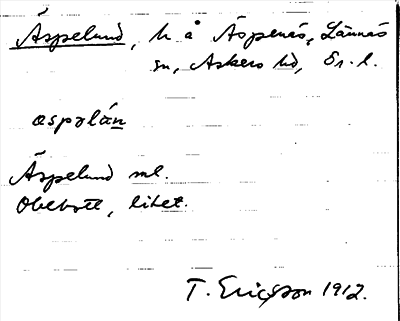 Äspelund, h å Äspenäs, Lännäs
sn, Askers hd, Ör. l.
æspəlán
Äspelund ml.
Obebott, litet.
T. Ericsson 1912.